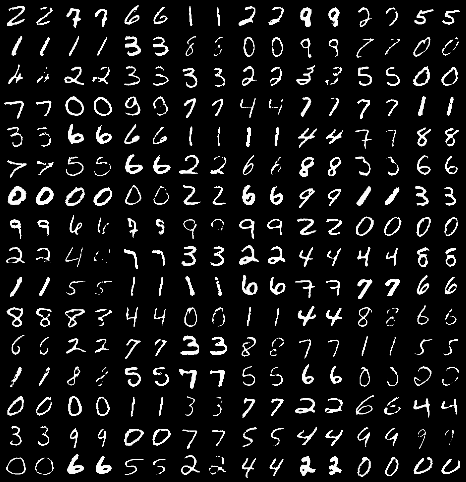 2 2 7 7 6 6 1 1 2 2 9 9 2 2 5 5
1 1 1 1 3 3 8 8 0 0 9 9 7 7 0 0
4 4 2 2 3 3 3 3 2 2 3 3 5 5 0 0
7 7 0 0 9 9 7 7 4 4 1 1 7 7 1 1
3 3 6 6 6 6 1 1 1 1 4 4 7 7 8 8
7 7 5 5 6 6 2 2 6 6 8 8 3 3 6 6
0 0 0 0 0 0 2 2 6 6 9 9 1 1 3 3
9 9 6 6 9 9 9 2 2 0 0 0 0
2 2 4 7 7 3 3 2 2 4 4 4 4 8 8
1 1 5 5 1 1 1 1 6 6 7 7 7 7 6 6
8 8 8 3 4 4 0 0 1 1 4 4 8 8 6 6
6 6 2 2 7 7 3 3 8 8 7 7 1 1 5 5
1 1 8 8 5 5 7 7 5 5 6 6 0 0
0 0 0 0 1 1 3 3 7 7 2 2 6 6 4 4
3 3 9 9 0 0 7 7 5 5 4 4 9 9 9 9
0 0 6 6 5 5 2 2 4 4 2 2 0 0 0 0